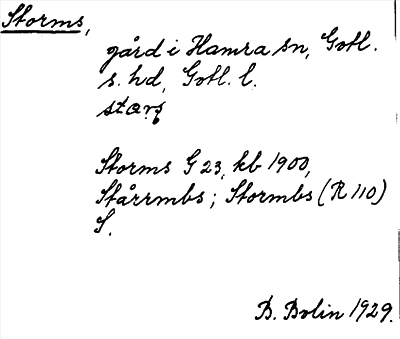 Storms,
gård i Hamra sn, Gotl.
s. hd, Gotl. l.
Storms G 23, kb 1900,
Stårrmbs; Stormbs (R 110)
S.
B. Bolin 1929.